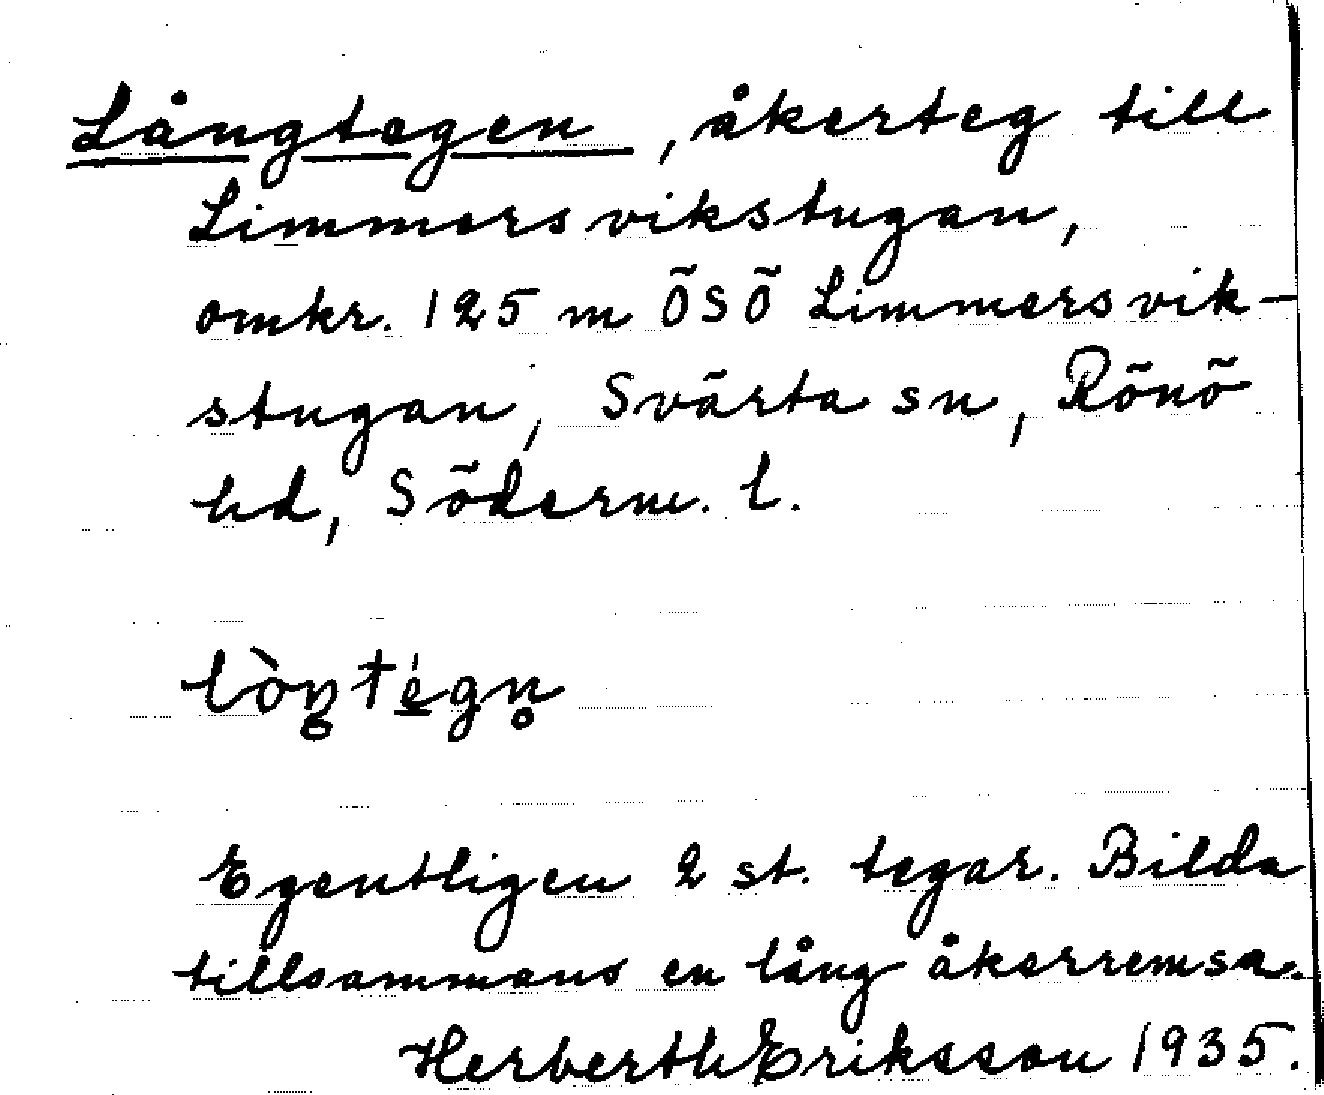 Långtegen, åkerteg till
Limmersvikstugan,
omkr. 125 m ÖSÖ Limmersvik-
stugan, Svärta sn, Rönö
hd, Söderm. l.
lòŋtégn̥
Egentligen 2 st. tegar. Bilda
tillsammans en lång åkerremsa.
Herberth Eriksson 1935.